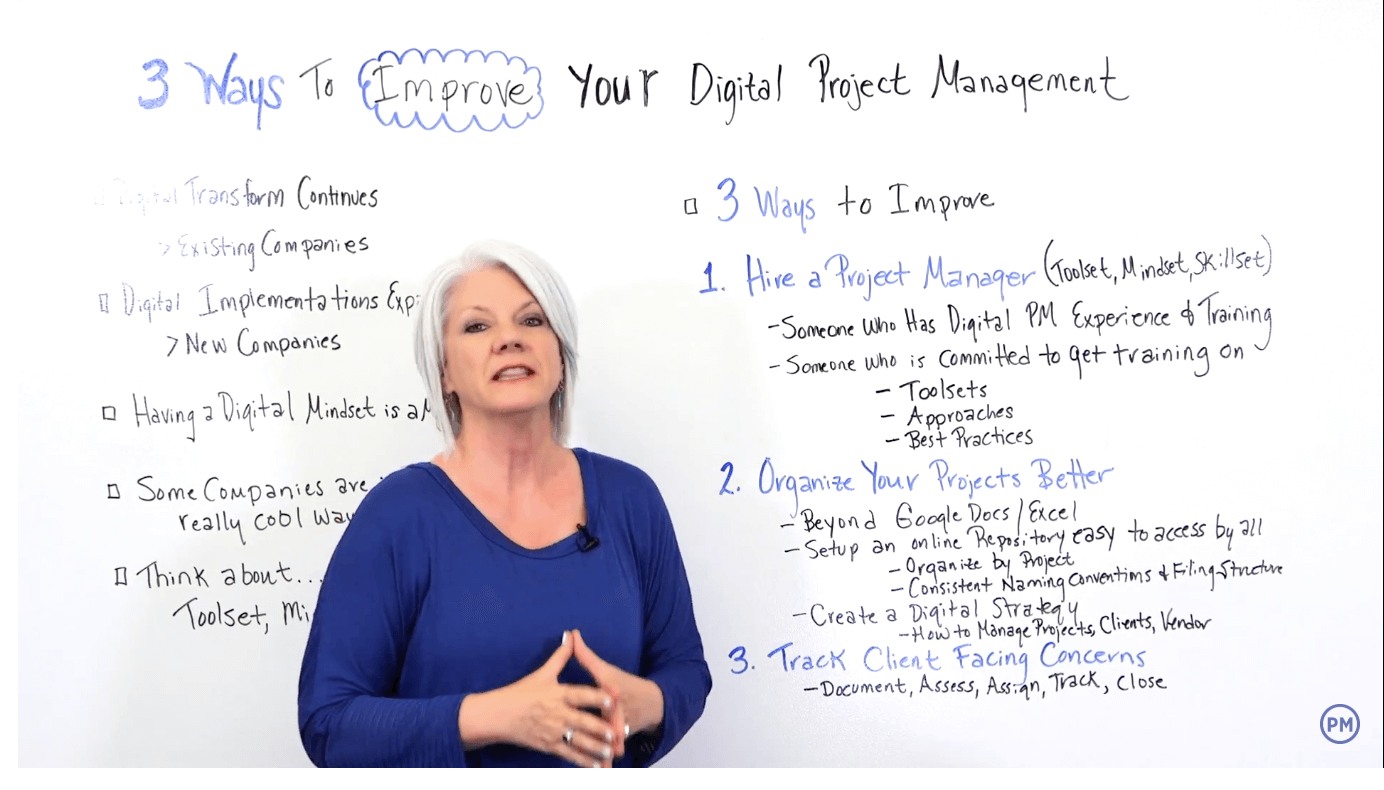 3 Ways To Improve Your Digital Project Management
Digital Transform Continues
> Existing Companies
Digital Implementations Exp
> New Companies
Having a Digital Mindset is a
Some Companies are
really cool way
Think about...
Toolset, Mi
3 Ways to Improve
1. Hire a Project Manager (Toolset, Mindset, Skillset)
- Someone who Has Digital PM Experience & Training
- Someone who is committed to get training on
- Toolsets
- Approaches
- Best Practices
2. Organize Your Projects Better
- Beyond Google Docs/Excel
- Setup an online Repository easy to access by all
- Organize by Project
- Consistent Naming Conventions & Filing Structure
- Create a Digital Strategy
- How to Manage Projects, Clients, Vendor
3. Track Client Facing Concerns
- Document, Assess, Assign, Track, Close
PM